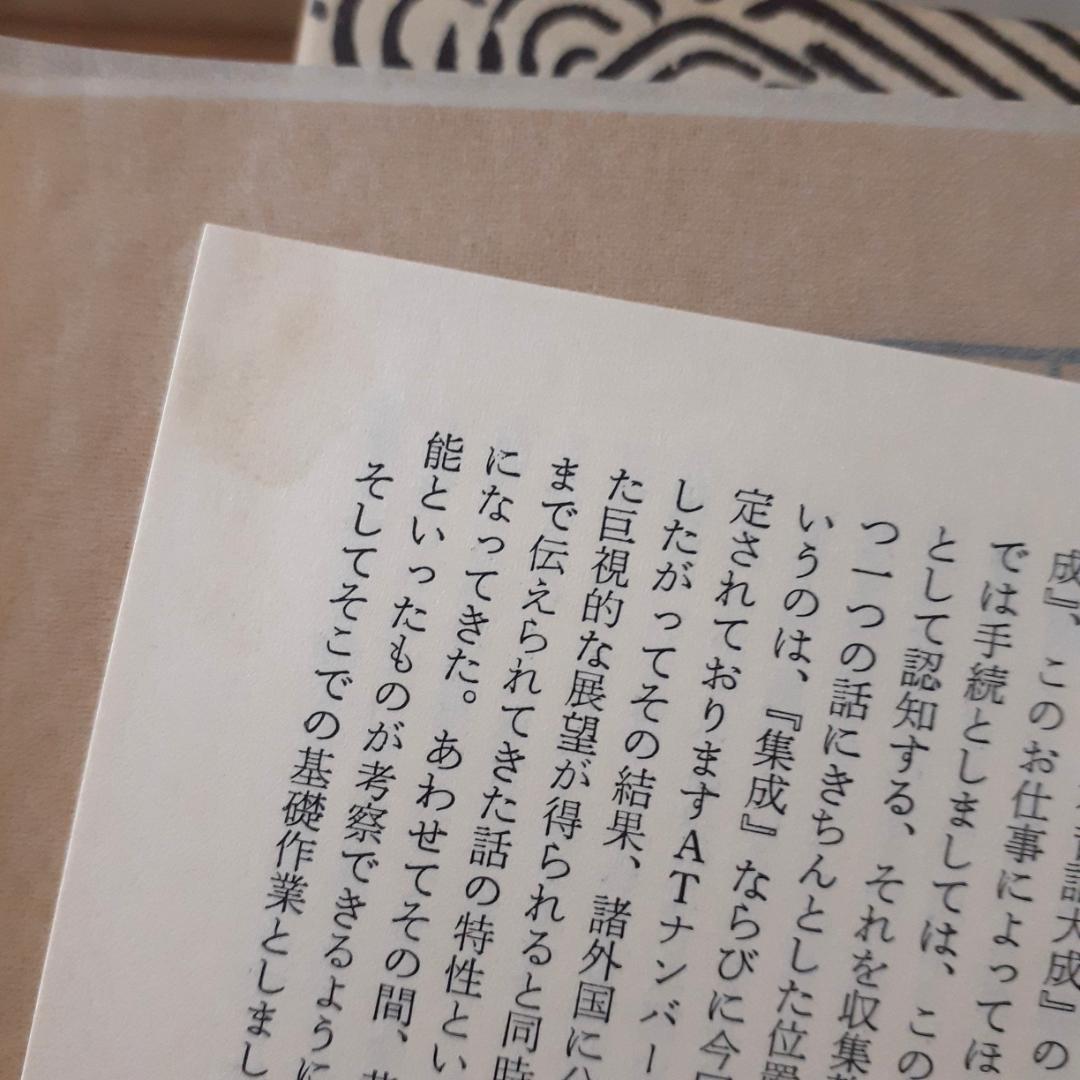 話大成』の
成』、このお仕事によってほ
では手続としましては、この
として認知する、それを収集
つ一つの話にきちんとした位置
いうのは、『集成』ならびに今
定されておりますATナンバー
したがってその結果、諸外国に
た巨視的な展望が得られると同時
まで伝えられてきた話の特性とい
になってきた。あわせてその間、
能といったものが考察できるように
そしてそこでの基礎作業としまし